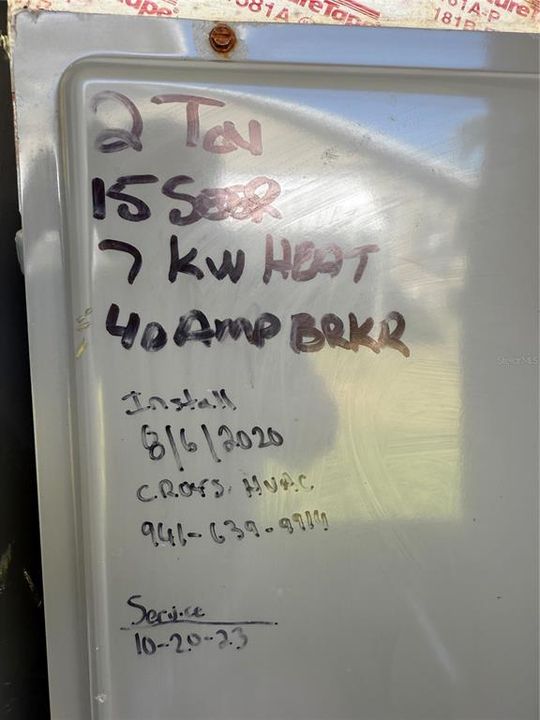 581A
181B
2 Ton
15 Seer
7 KW HEAT
40 Amp BRKR
Install
8/6/2020
HVAC
941-639-
Service
10-20-23
StellarMLS